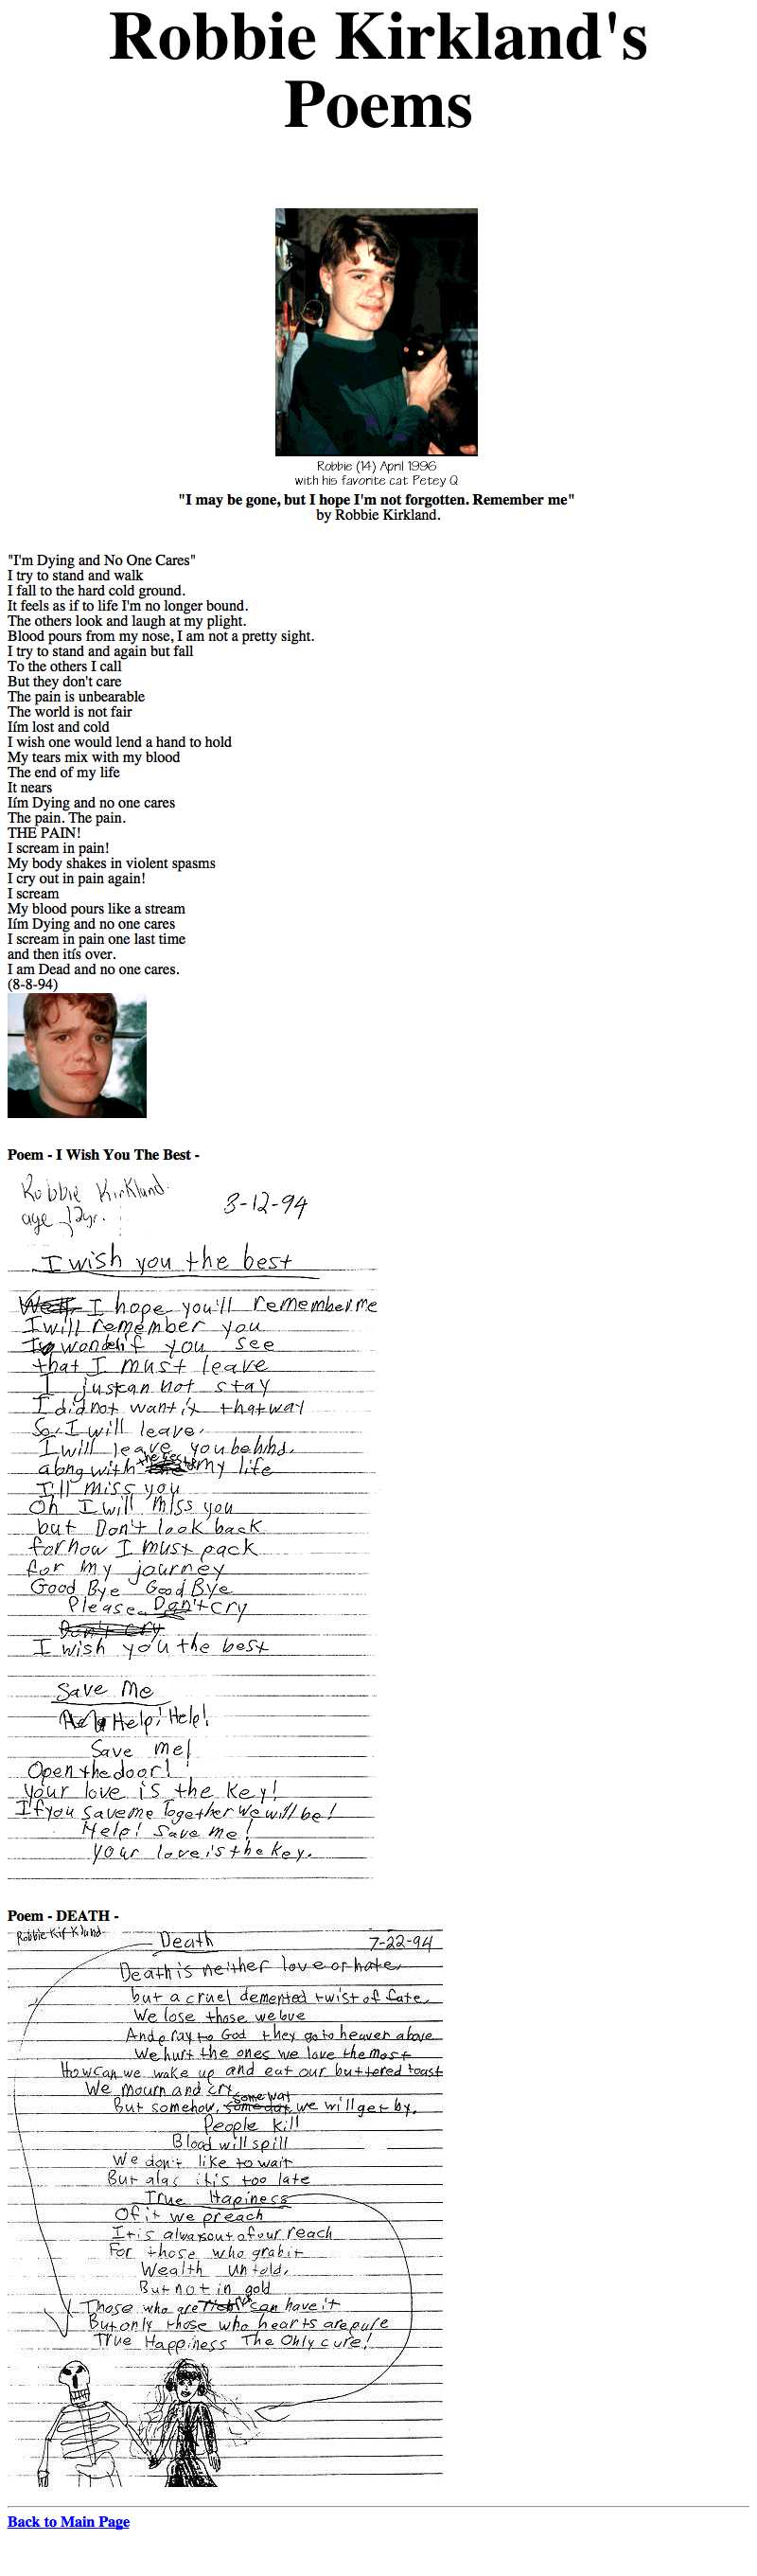 Robbie Kirkland's
Poems
Robbie (14) April 1996
with his favorite cat Petey Q
"I may be gone, but I hope I'm not forgotten. Remember me"
by Robbie Kirkland.
"I'm Dying and No One Cares"
I try to stand and walk
I fall to the hard cold ground.
It feels as if to life I'm no longer bound.
The others look and laugh at my plight.
Blood pours from my nose, I am not a pretty sight.
I try to stand and again but fall
To the others I call
But they don't care
The pain is unbearable
The world is not fair
Iím lost and cold
I wish one would lend a hand to hold
My tears mix with my blood
The end of my life
It nears
Iím Dying and no one cares
The pain. The pain.
THE PAIN!
I scream in pain!
My body shakes in violent spasms
I cry out in pain again!
I scream
My blood pours like a stream
Iím Dying and no one cares
I scream in pain one last time
and then itís over.
I am Dead and no one cares.
(8-8-94)
Poem - I Wish You The Best -
Robbie Kirkland.
age 12yr.
3-12-94
I wish you the best
I hope you'll remember me
I will remember you
I wonder if you see
that I must leave
I just can not stay
I did not want it that way
So, I will leave,
I will leave you behind,
along with the rest of my life
I'll miss you
Oh I will miss you
but Don't look back
for now I must pack
for my journey
Good Bye Good Bye
Please Don't cry
Don't cry
I wish you the best
Save Me
Help! Help!
Save me!
Open the door!
your love is the key!
If you save me Together we will be!
Help! Save me!
your love is the key.
Poem - DEATH -
Robbie Kirkland
Death
7-22-94
Death is neither love or hate,
but a cruel demented twist of fate,
We lose those we love
And pray to God they go to heaven above
We hurt the ones we love the most
How can we wake up and eat our buttered toast
We mourn and cry
But somehow, some way we will get by.
People kill
Blood will spill
We don't like to wait
But alas it's too late
True Hapiness
Of it we preach
It is always out of our reach
For those who grab it
Wealth untold,
But not in gold
Those who are can have it
But only those who hearts are pure
True Happiness The Only cure!
Back to Main Page